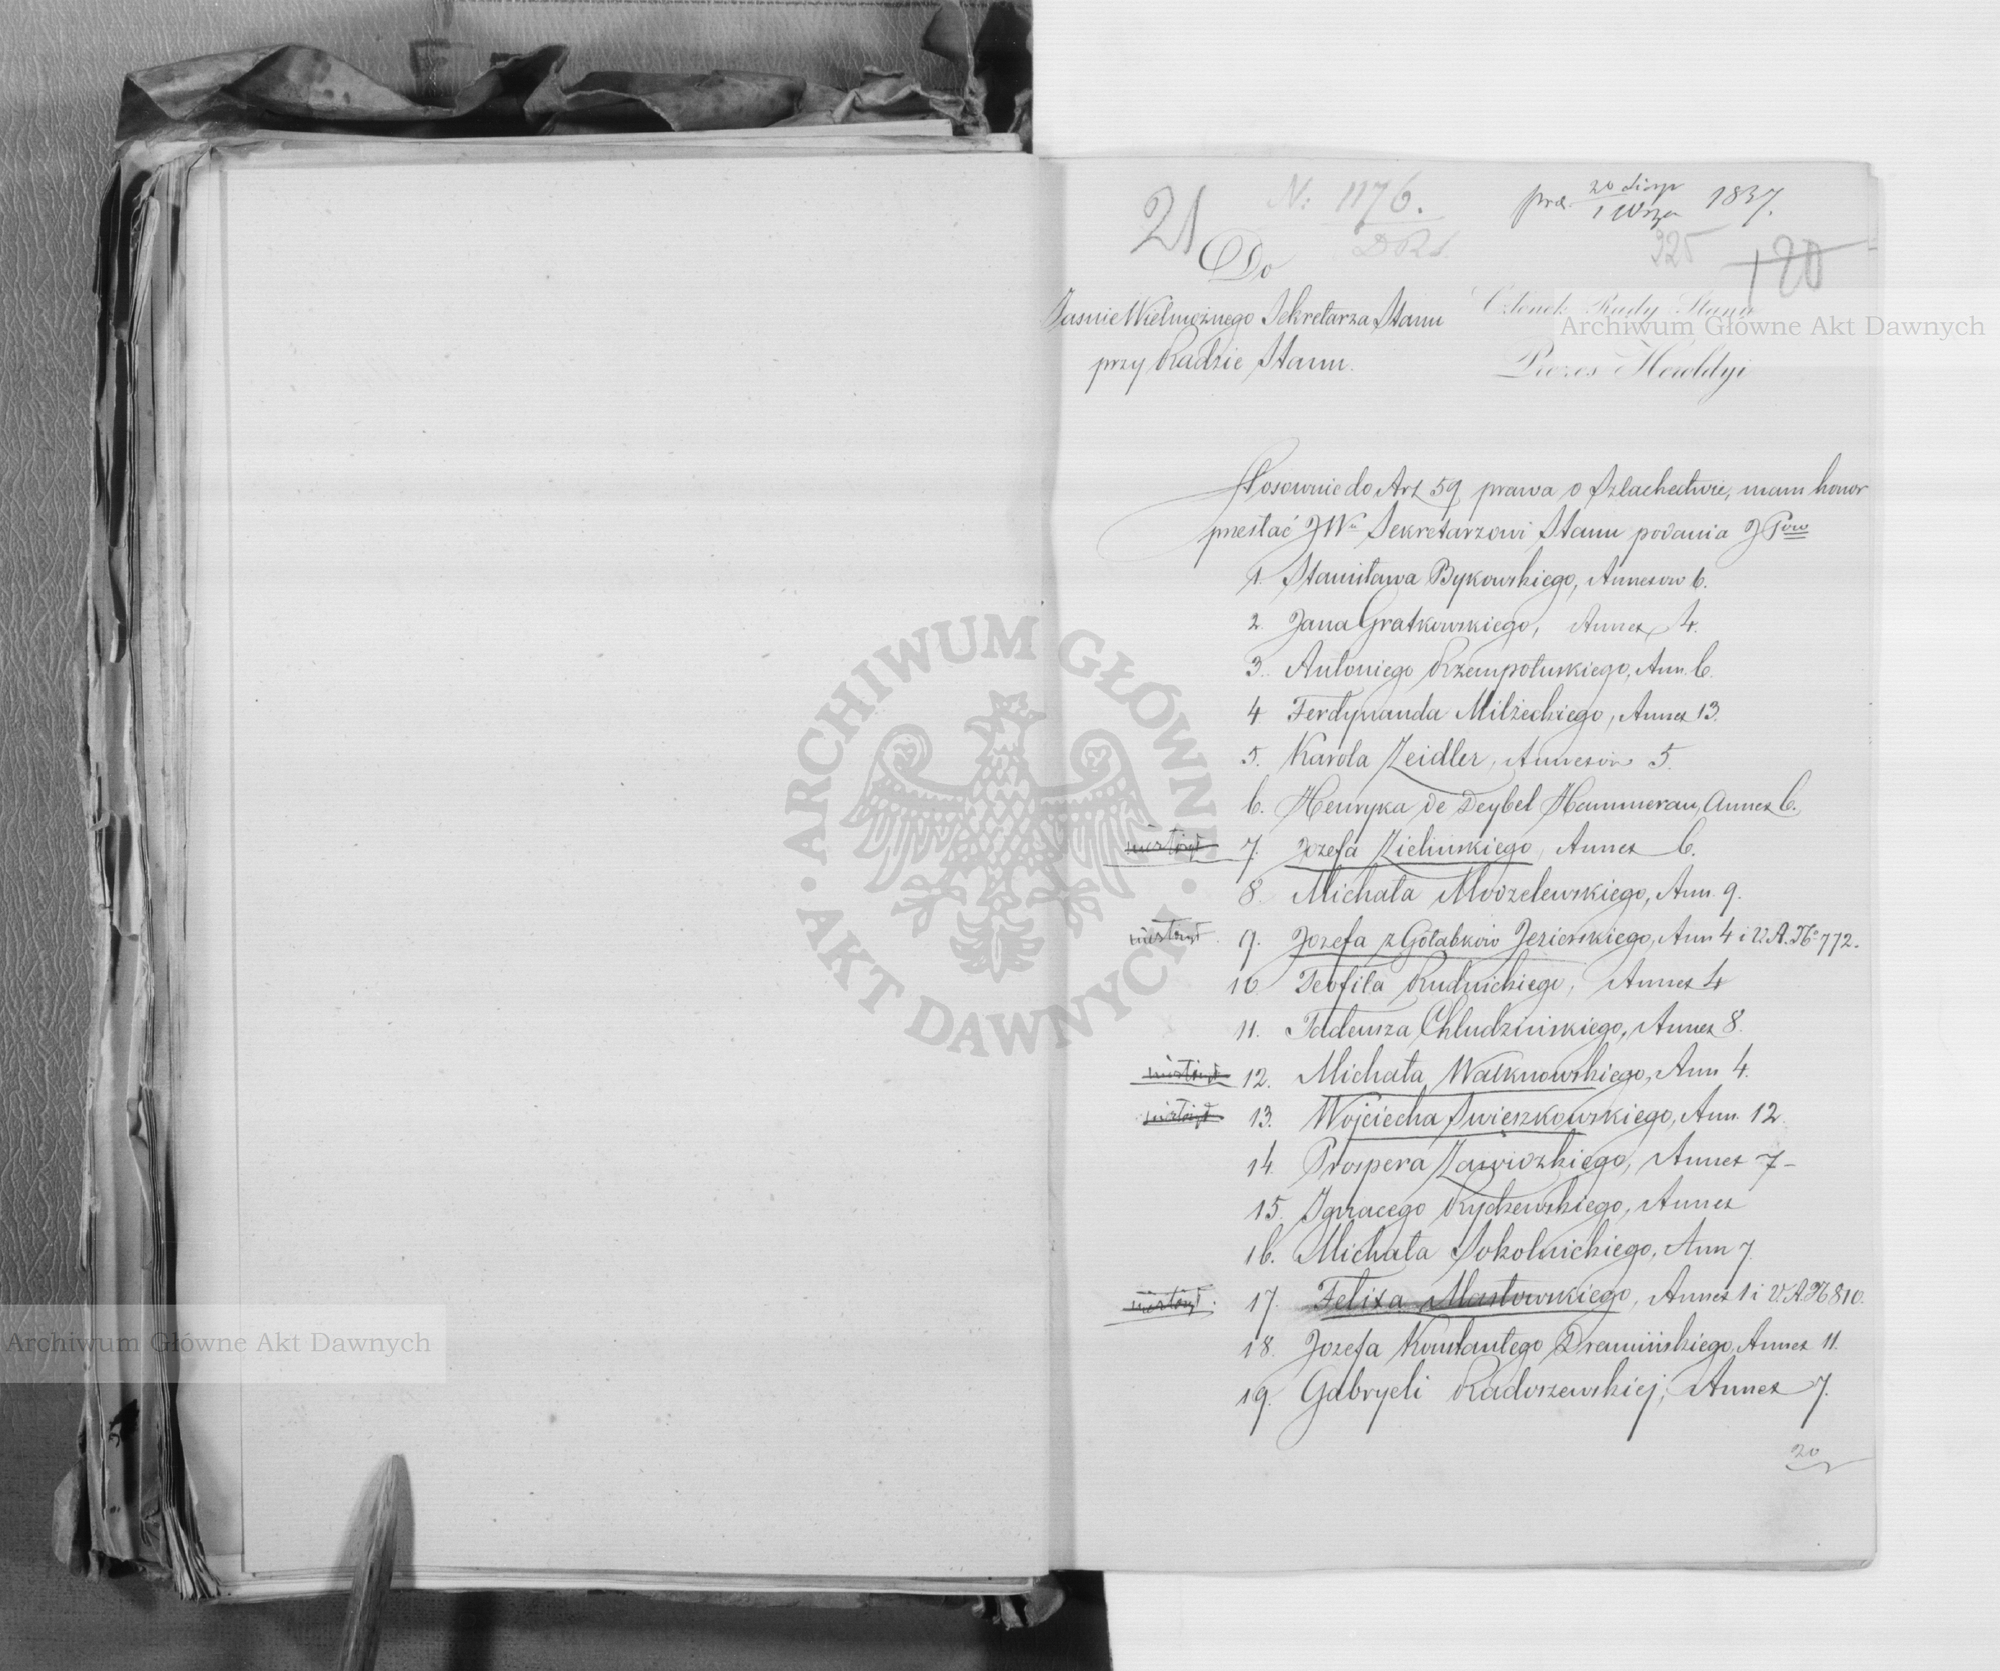 21
N: 1176.
DRS.
prd. 20 Sierp 1837.
1 Wrze
225
120
Do
Jaśnie Wielmożnego Sekretarza Stanu
przy Radzie Stanu.
Członek Rady Stanu
Prezes Heroldyi
Archiwum Główne Akt Dawnych
Stosownie do Art 59 prawa o Szlachectwie, mam honor
przesłać JWu Sekretarzowi Stanu podania JPow
1. Stanisława Bykowskiego, Annexow 6.
2. Jana Gratkowskiego, Annex 4.
3. Antoniego Rzempołuskiego, Ann. 6.
4 Ferdynanda Milżeckiego, Annex 13.
5. Karola Zeidler, Annexów 5.
6. Henryka de Deybel Hammerau, Annex 6.
niestąpł 7. Jozefa Zielinskiego, Annex 6.
8. Michała Mroozelewskiego, Ann. 9.
9. Jozefa z Gołabków Jezierskiego, Ann 4 i V.A. No 772.
10 Teofila Rudnickiego, Annex 4
11. Tadeusza Chludzinskiego, Annex 8.
12. Michała Walknowskiego, Ann 4.
13. Wojciecha Swieszkowskiego, Ann. 12.
14. Prospera Zawidzkiego, Annex 7-
15. Ignacego Rydzewskiego, Annex
16. Michała Sokolnickiego, Ann 7.
17. Felixa Masłowskiego, Annex 1 i V.A N 810.
18. Jozefa Konstantego Dramińskiego, Annex 11.
19. Gabryeli Radoszewskiej, Annex 7.
20
ARCHIWUM GŁÓWNE
AKT DAWNYCH
Archiwum Główne Akt Dawnych